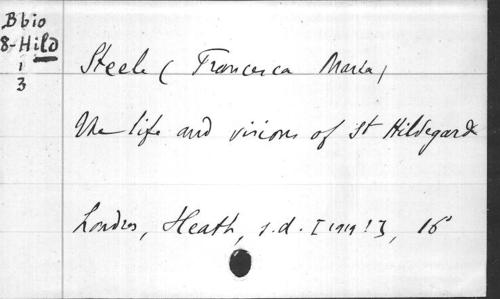 B bio
8-Hild
1
3
Steele ( Francesca Maria )
The life and visions of St Hildegarde
Londres, Heath, s.d. [1919?], 16°